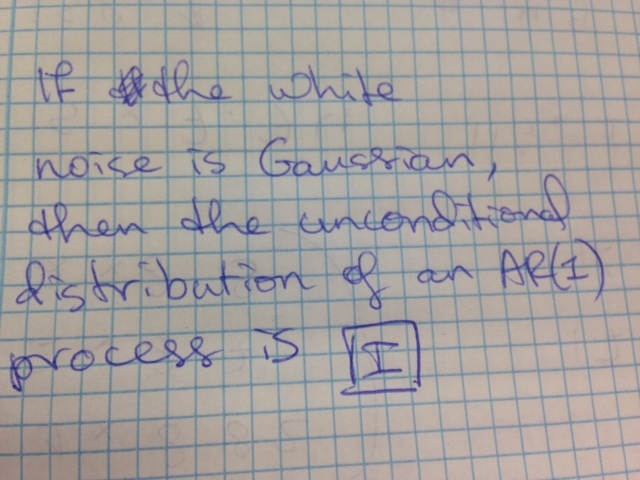 If the white
noise is Gaussian,
then the unconditional
distribution of an AR(1)
process is I